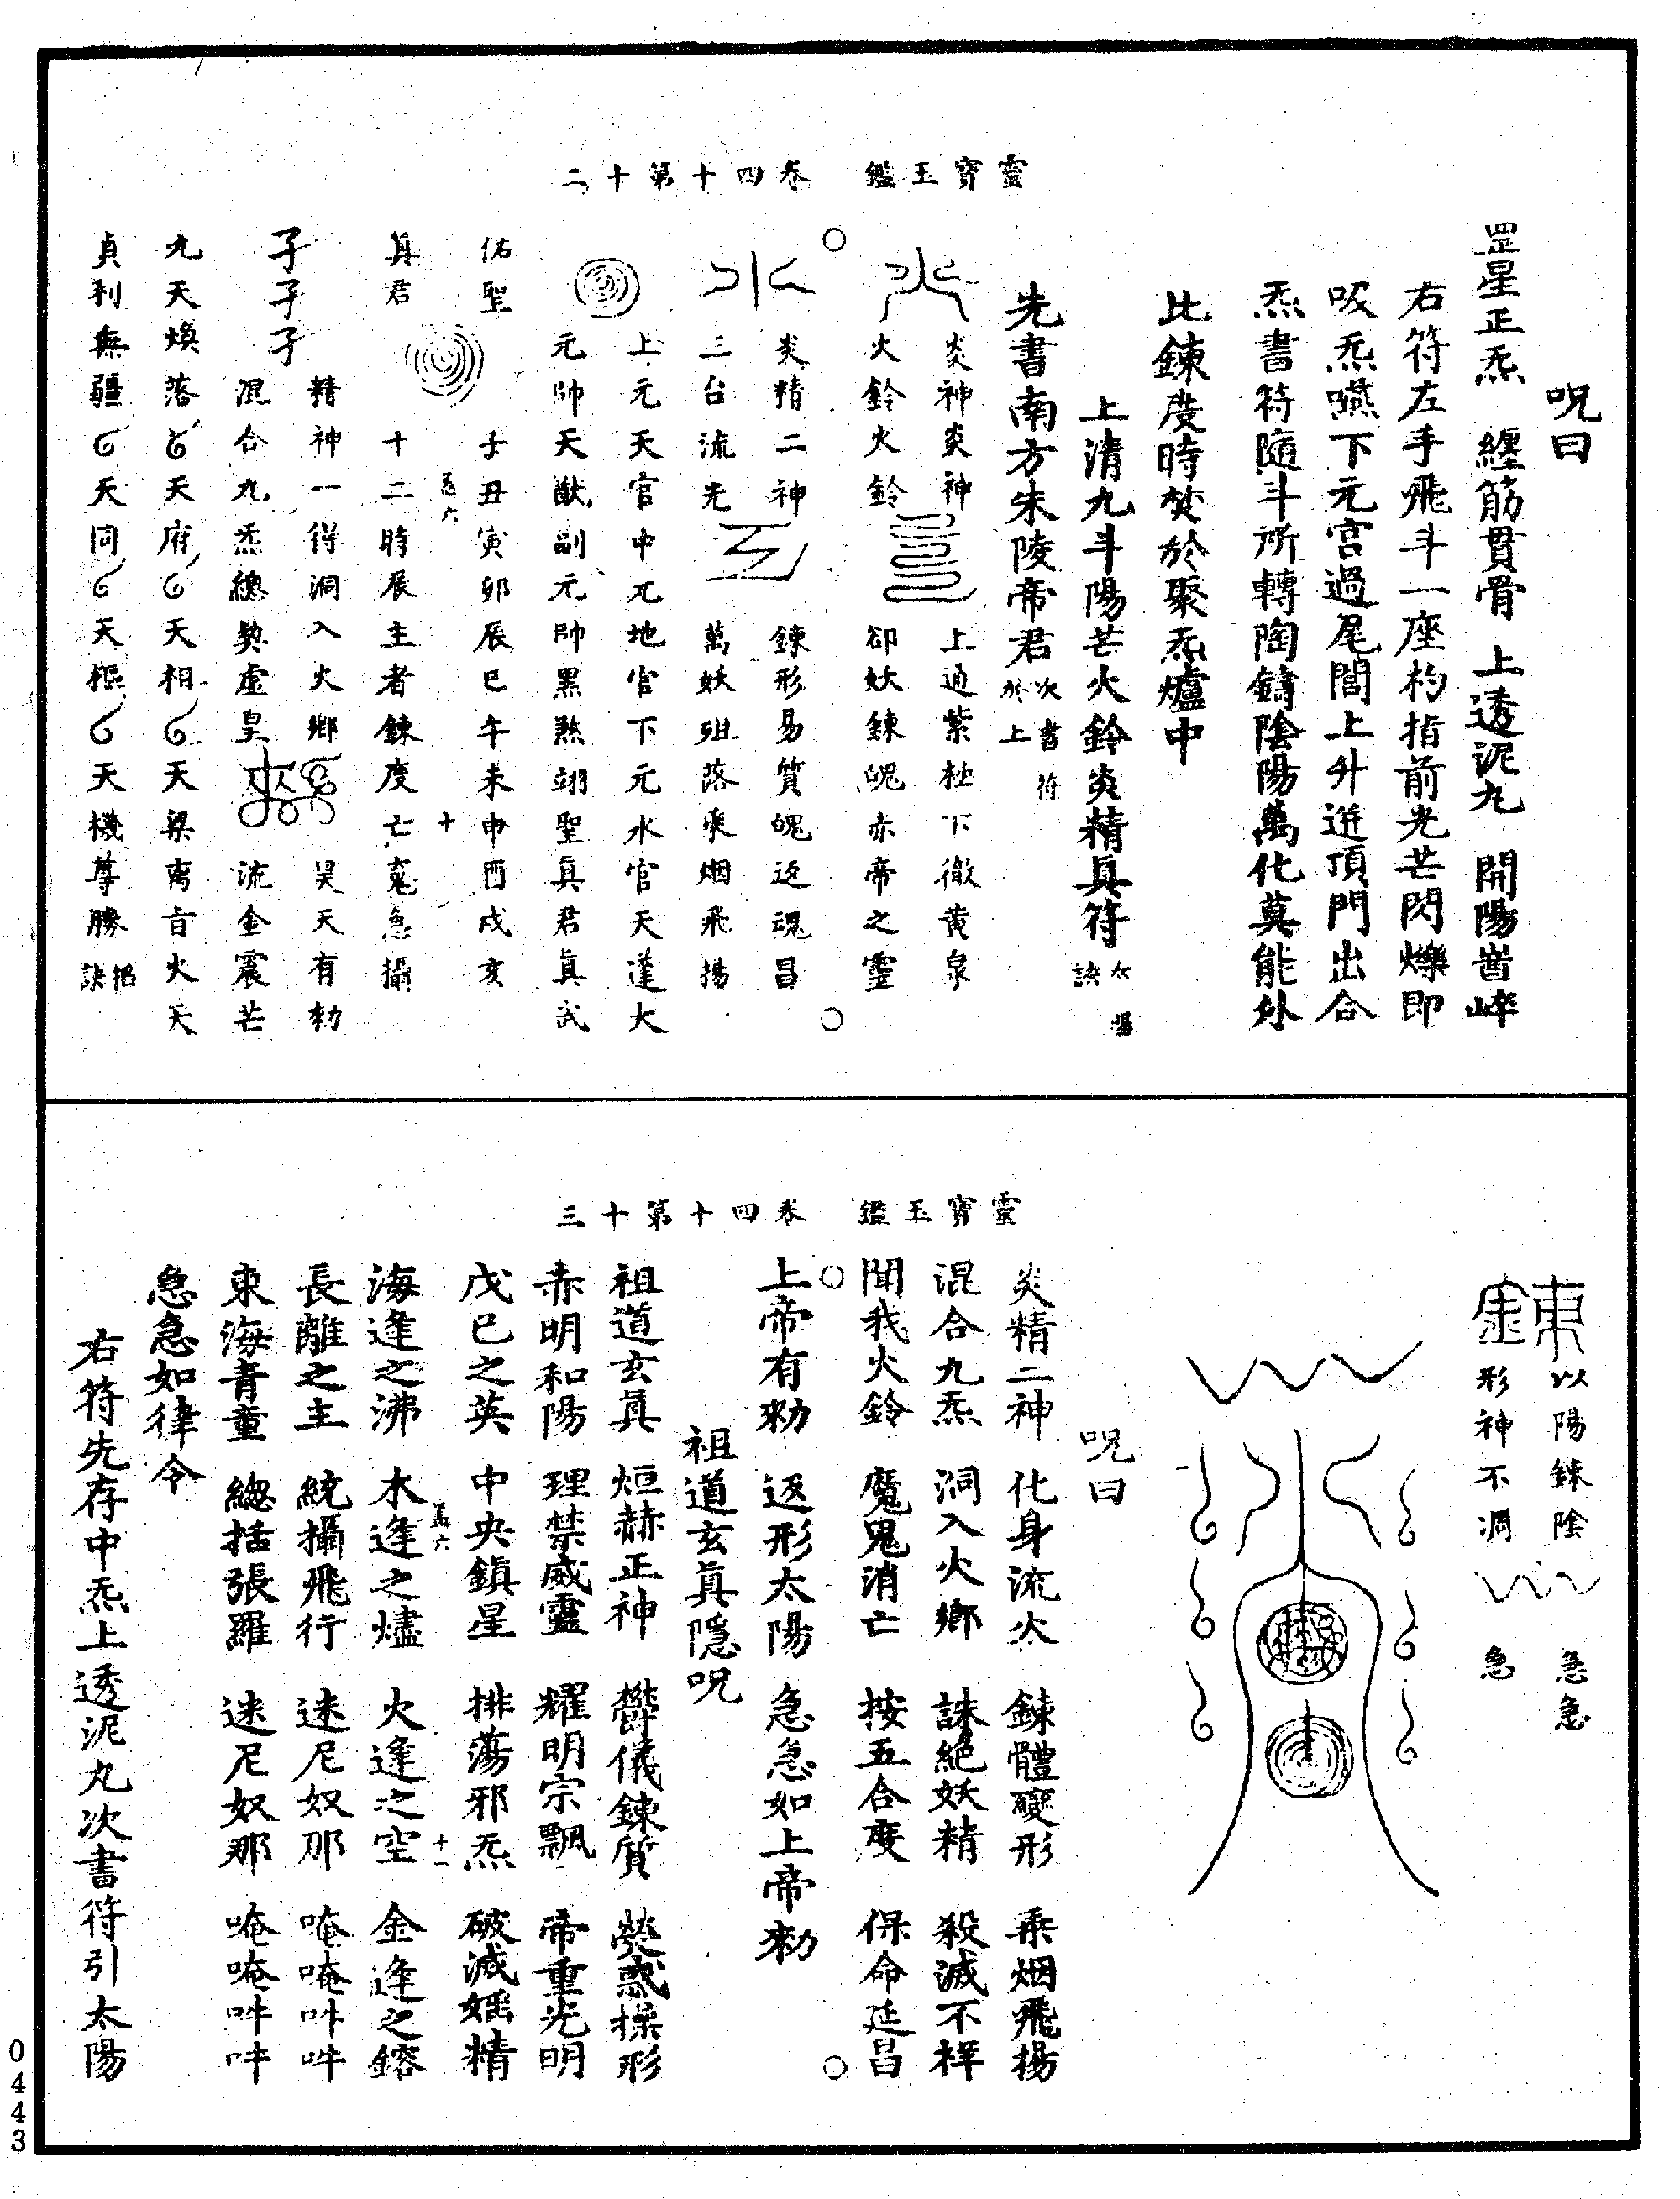 靈寶玉鑑　卷四十第十二
呪曰
罡星正炁　纏筋貫骨　上透泥丸　開陽崷崒
右符左手飛斗一座杓指前光芒閃爍即
吸炁嚥下元宮過尾閭上升迸頂門出合
炁書符隨斗所轉陶鑄陰陽萬化莫能外
比鍊度時焚於聚炁爐中
上清九斗陽芒火鈴炎精真符
先書南方朱陵帝君次書符於上
炎神炎神　上通紫極下徹黃泉
火鈴火鈴　卻妖鍊魄赤帝之靈
炎精二神　鍊形易質魄返魂昌
三台流光　萬妖殂落乘烟飛揚
上元天官中元地官下元水官天蓬大
元帥天猷副元帥黑煞翊聖真君真武
佑聖　子丑寅卯辰巳午未申酉戌亥
孟六　十
真君　十二時辰主者鍊度亡䰟急攝
孑孑孑　精神一得洞入火鄉　昊天有勑
混合九炁總契虛皇　流金震芒
九天煥落　天府　天相　天梁离旨火天
貞利無疆　天同　天樞　天機尊勝　訣
靈寶玉鑑　卷四十第十三
鍊　以陽鍊陰　急急
形神不凋　急
呪曰
炎精二神　化身流火　鍊體變形　乘烟飛揚
混合九炁　洞入火鄉　誅絕妖精　殺滅不祥
聞我火鈴　魔鬼消亡　按五合度　保命延昌
上帝有勑　返形太陽　急急如上帝勑
祖道玄真隱呪
祖道玄真　烜赫正神　欝儀鍊質　熒惑操形
赤明和陽　理禁威靈　耀明宗飄　帝重光明
戊巳之英　中央鎮星　排蕩邪炁　破滅妖精
孟六　十一
海逢之沸　木逢之燼　火逢之空　金逢之鎔
長離之主　統攝飛行　迷尼奴那　唵唵吽吽
東海青童　總括張羅　迷尼奴那　唵唵吽吽
急急如律令
右符先存中炁上透泥丸次書符引太陽
0443